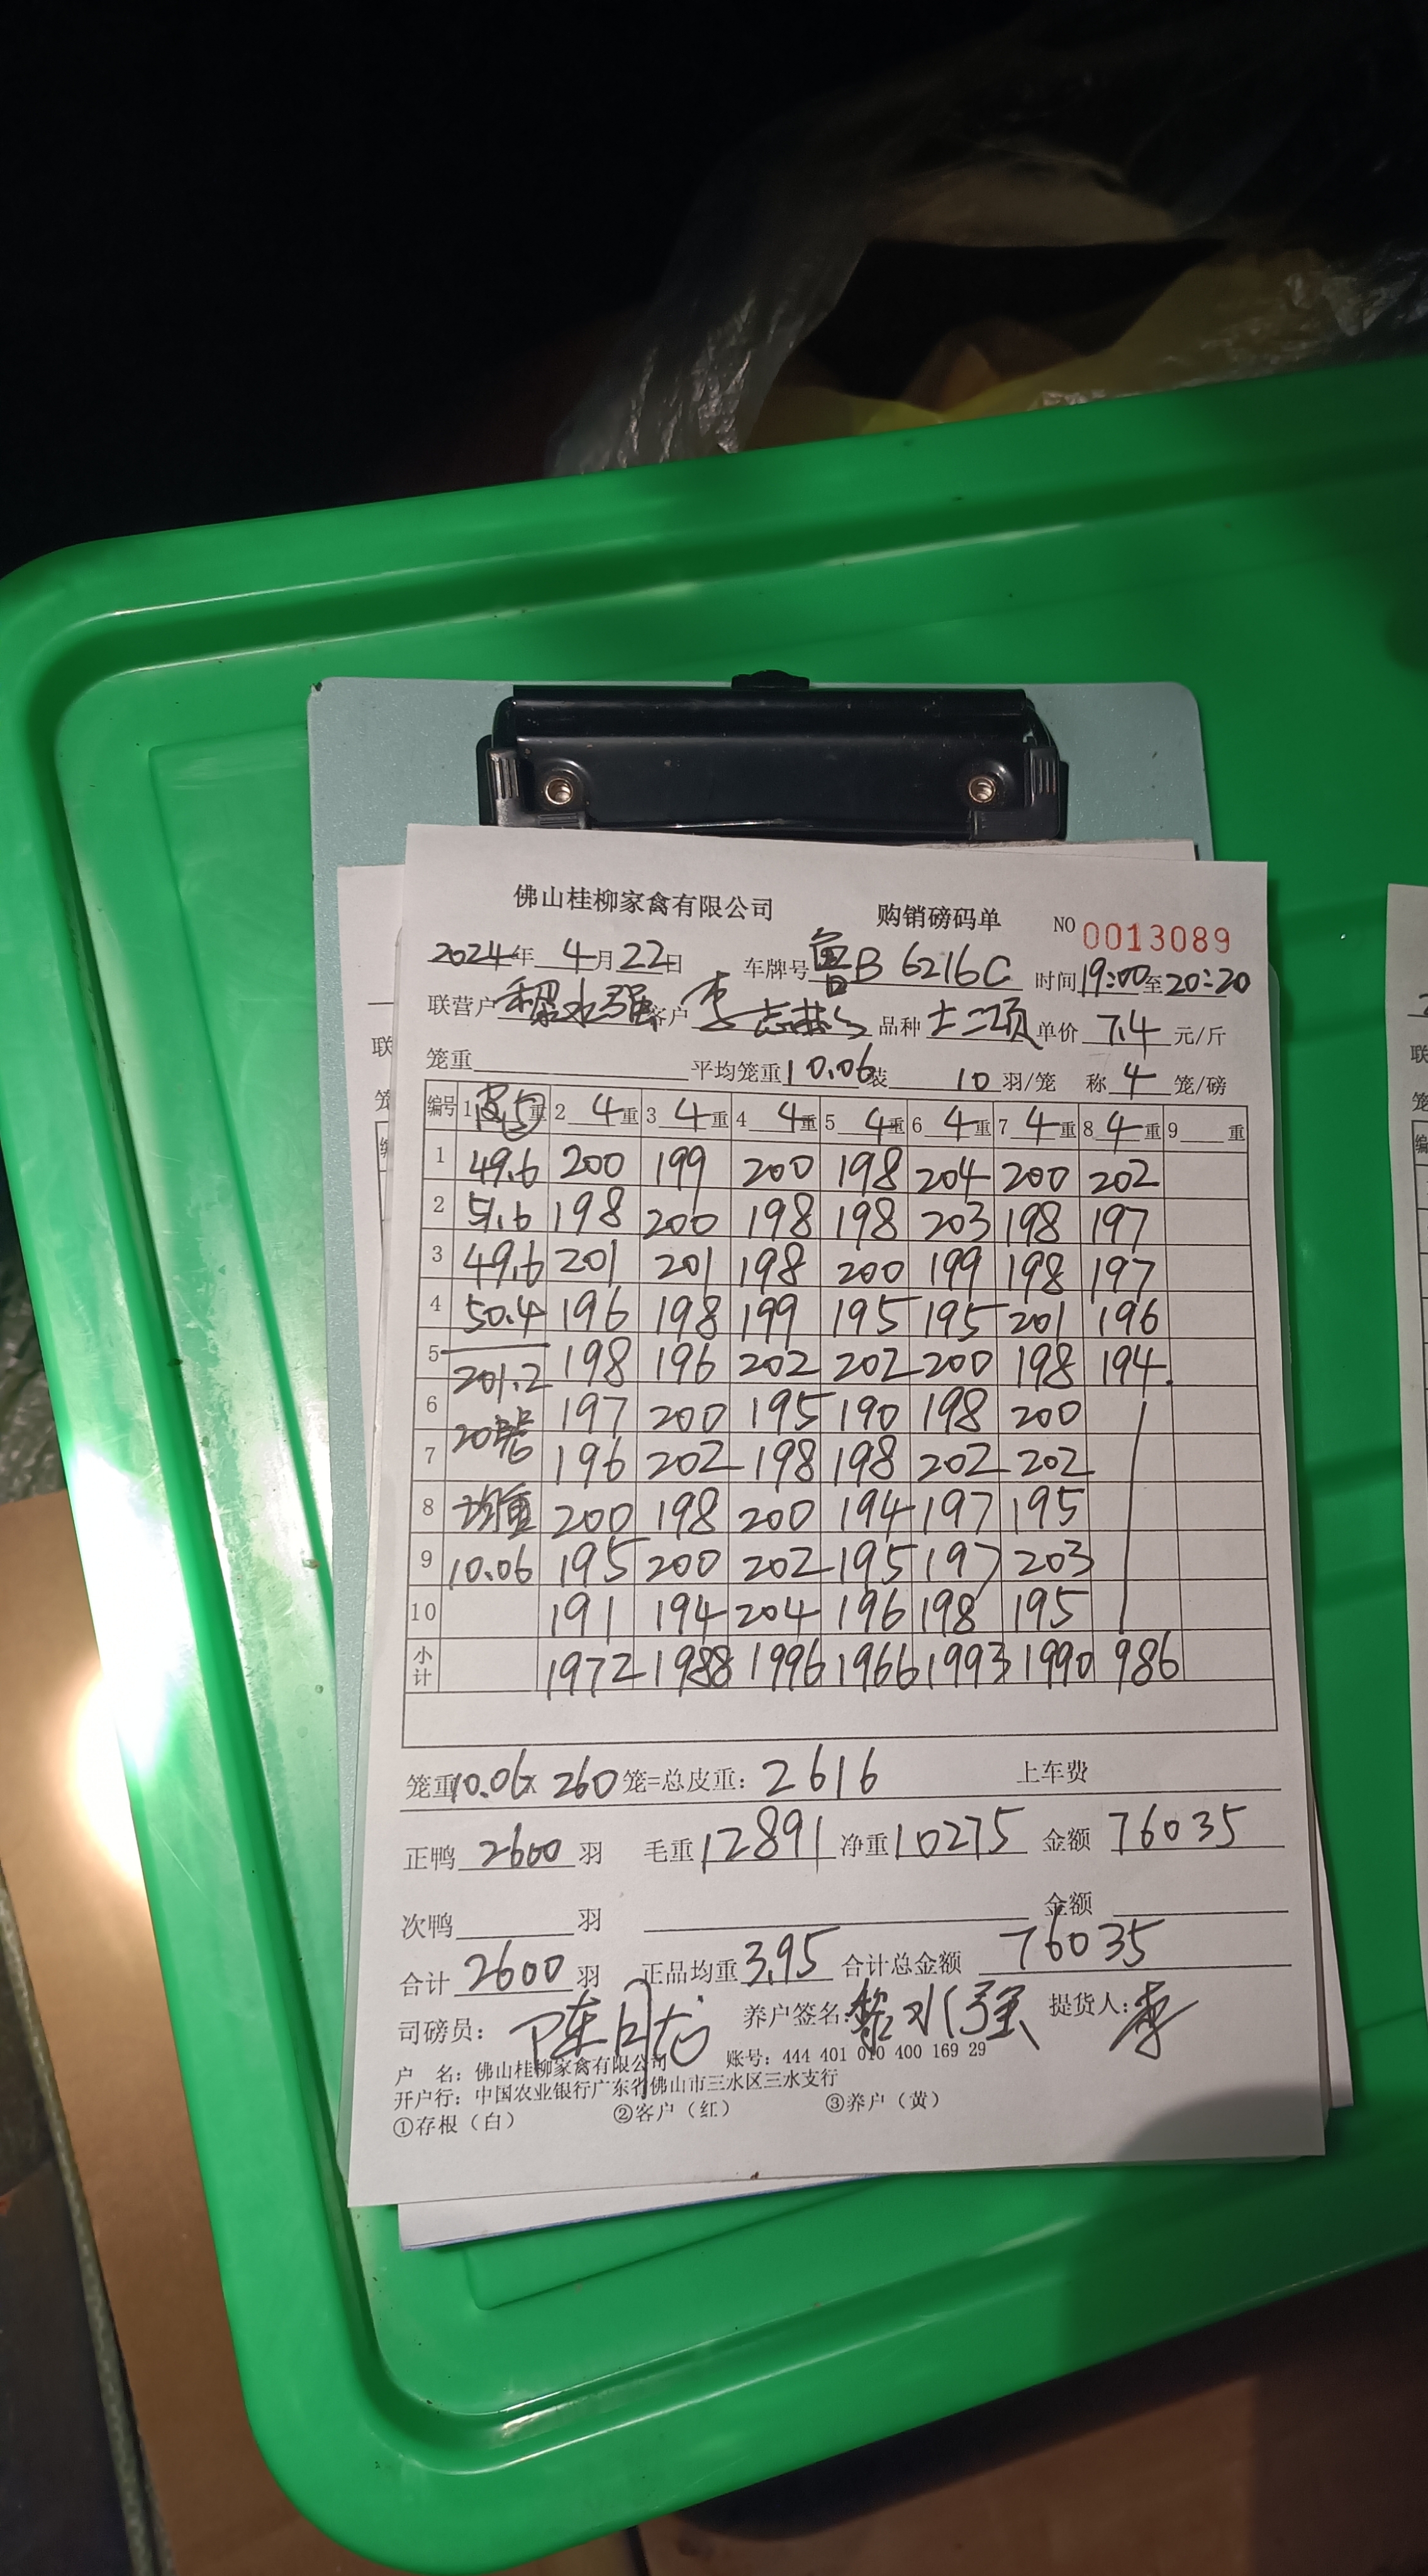 佛山桂柳家禽有限公司 购销磅码单 NO 0013089
2024年 4月22日 车牌号 鲁B 6216C 时间19:00至20:20
联营户 黎水强 客户 李志 品种 单价 7.4 元/斤
笼重 平均笼重10.06 装 10 羽/笼 称 4 笼/磅
编号 1 皮5 重 2 4 重 3 4 重 4 4 重 5 4 重 6 4 重 7 4 重 8 4 重 9 重
1 49.6 200 199 200 198 204 200 202
2 51.6 198 200 198 198 203 198 197
3 49.6 201 201 198 200 199 198 197
4 50.4 196 198 199 195 195 201 196
5 201.2 198 196 202 202 200 198 194.
6 20 197 200 195 190 198 200
7 196 202 198 198 202 202
8 均重 200 198 200 194 197 195
9 10.06 195 200 202 195 197 203
10 191 194 204 196 198 195
小计 1972 1988 1996 1966 1993 1990 986
笼重10.06x 260 笼=总皮重: 2616 上车费
正鸭 2600 羽 毛重 12891 净重 10275 金额 76035
次鸭 羽 金额
合计 2600 羽 正品均重 3.95 合计总金额 76035
司磅员: 陈 养户签名: 黎水强 提货人: 李
户 名: 佛山桂柳家禽有限公司 账号: 444 401 010 400 169 29
开户行: 中国农业银行广东省佛山市三水区三水支行
①存根（白） ②客户（红） ③养户（黄）